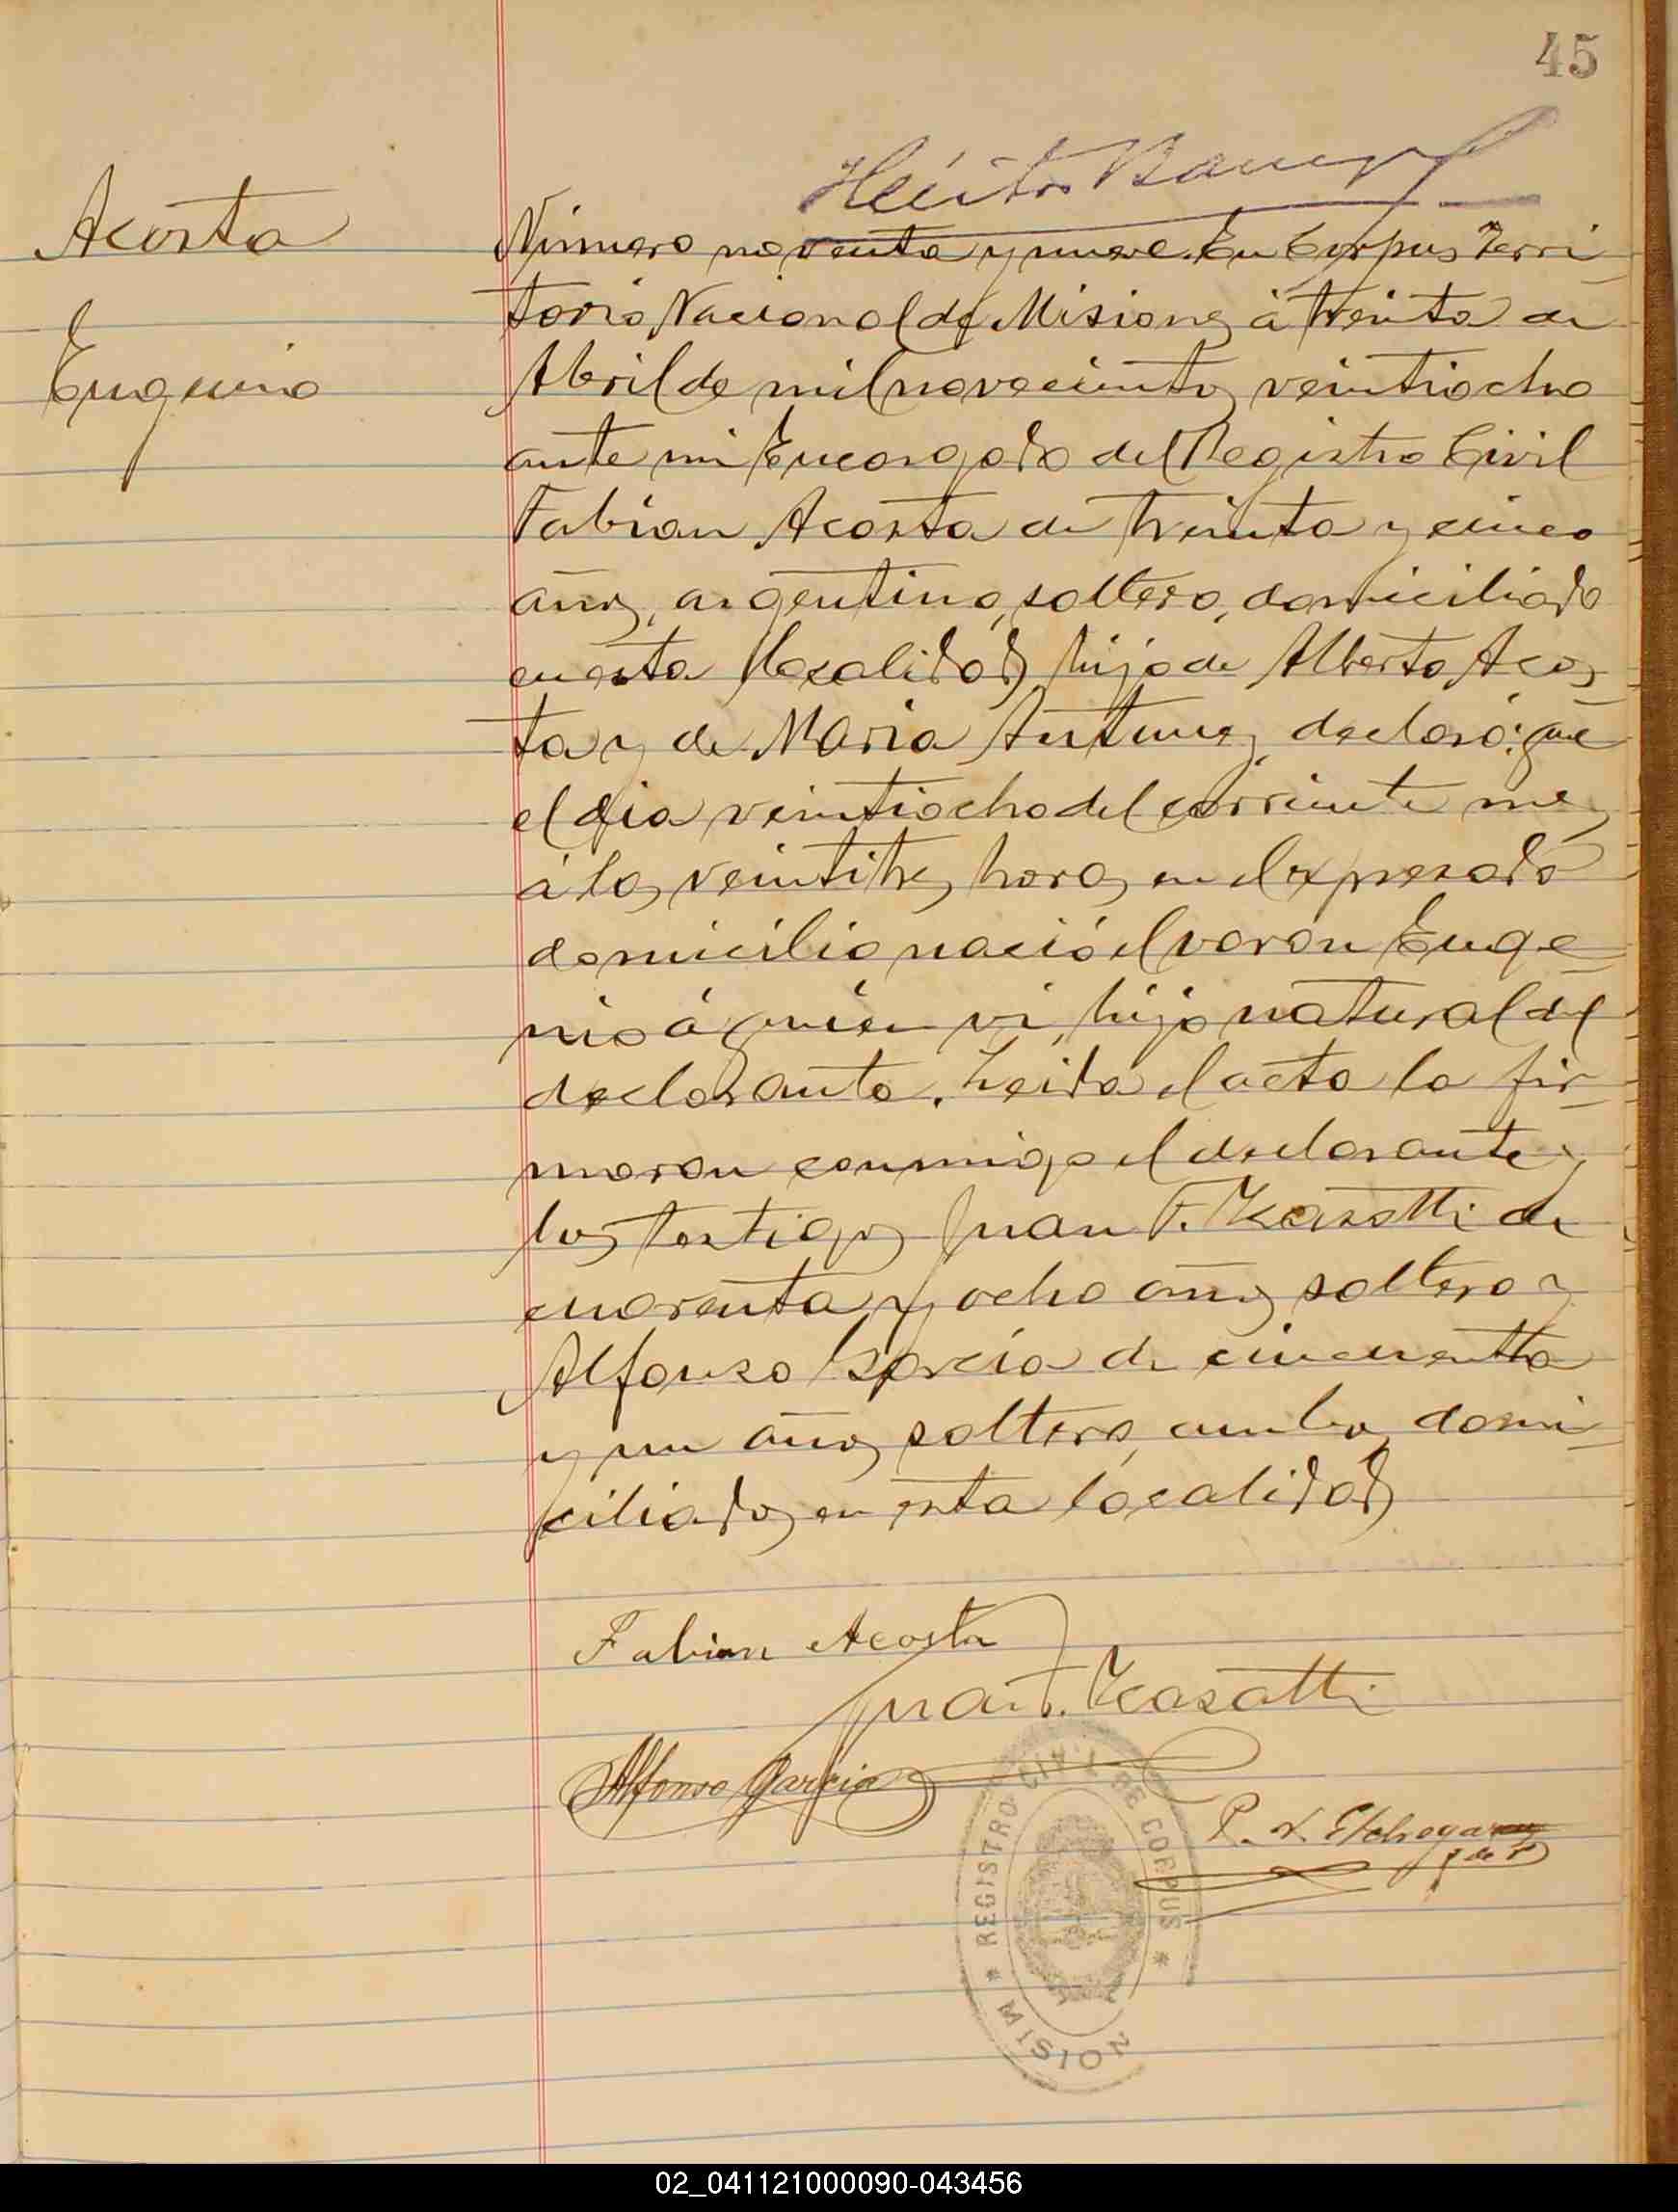 45
Acosta
Eugenio
Número noventa y nueve. En Corpus Terri-
torio Nacional de Misiones á treinta de
Abril de mil novecientos veintiocho
ante mi Encargado del Registro Civil
Fabian Acosta de treinta y cinco
años, argentino, soltero, domiciliado
en esta localidad hijo de Alberto Acos-
ta y de Maria Antunez declaró: que
el dia veintiocho del corriente mes
á las veintitres horas en el expresado
domicilio nació el varon Euge-
nio á quien vi, hijo natural del
declarante. Leida el acta la fir-
maron conmigo el declarante y
los testigos Juan F. Kasatti de
cuarenta y ocho años soltero y
Alfonso Garcia de cincuenta
y un años soltero, ambos domi-
ciliados en esta localidad
Fabian Acosta
Juan F. Kasatti
Alfonso Garcia
P. N. Etchegaray
J de P
* REGISTRO CIVIL DE CORPUS *
MISION
02_041121000090-043456